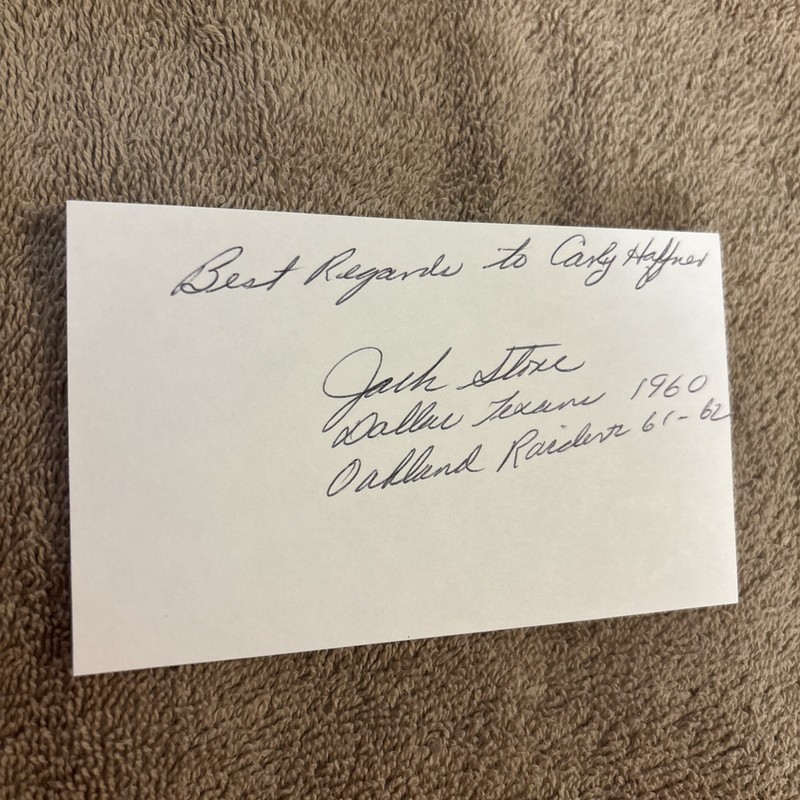 Best Regards to Carly Haffner
Jack Stone
Dallas Texans 1960
Oakland Raiders 61-62